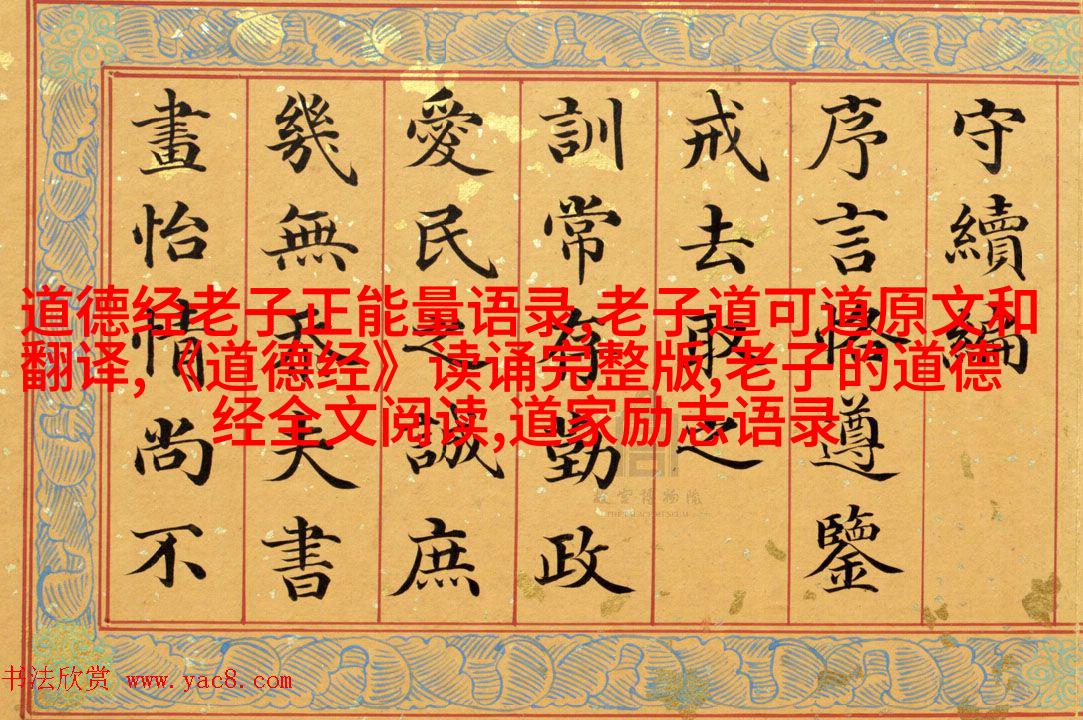 守續編
序言恪遵鑒
戒去取之
訓常有勤政
愛民之誠庶
幾無忝夫書
畫怡情尚不
道德经老子正能量语录,老子道可道原文和
翻译,《道德经》读诵完整版,老子的道德
经全文阅读,道家励志语录
故宮博物院
THE PALACE MUSEUM
书法欣赏 www.yac8.com